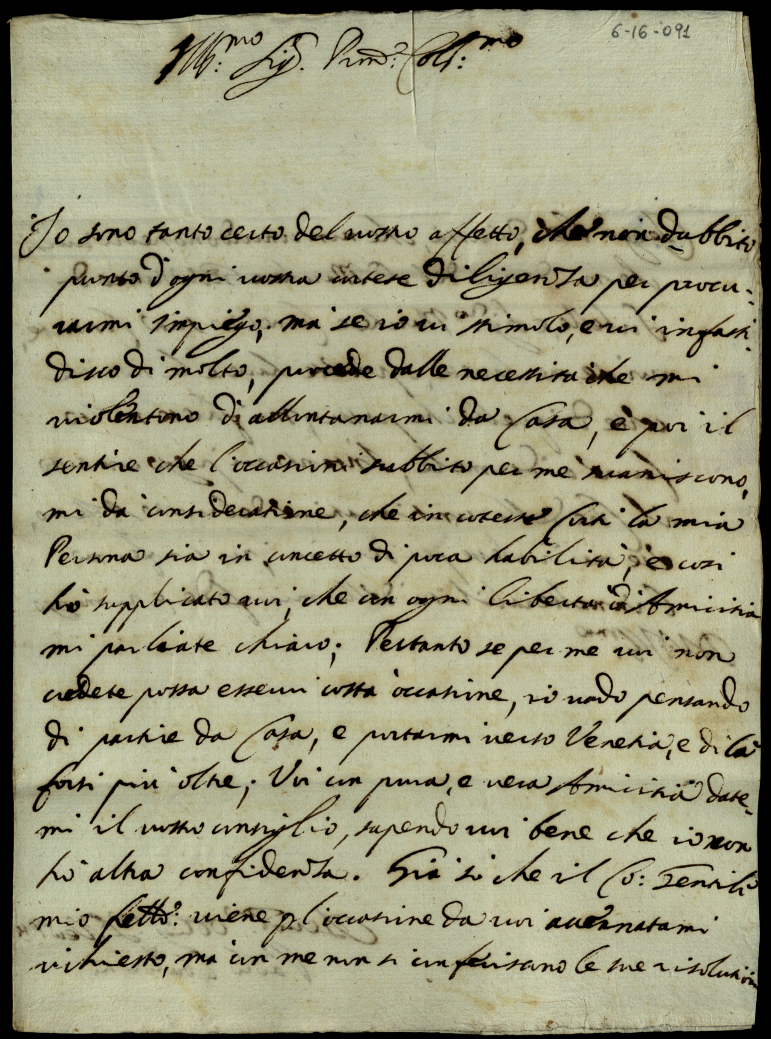 6-16-091
Ill:mo Sig.r Pron. Coll:mo
Io sono tanto certo del vostro affetto, che non dubbito
punto d'ogni vostra cortese diligenza per procu-
rarmi impiego, ma se io vi stimolo, e vi infasti-
disco di molto, procede dalle necessità che mi
violentano di allontanarmi da Casa, e poi il
sentire che l'occasioni subbito per me svaniscono,
mi dà consideratione, che in coteste Corti la mia
Persona sia in concetto di poca habilità, e cosi
hò supplicato voi, che con ogni libertà di Amicitia
mi parliate chiaro; Pertanto se per me voi non
credete possa esservi costà occasione, io vado pensando
di partire da Casa, e portarmi verso Venetia, e di là
forsi più oltre; Voi con pura, e vera Amicitia date-
mi il vostro consiglio, sapendo voi bene che io non
hò altra confidenza. Già sò che il Co: Gentile
mio viene p l'occasione da voi accennatami
richiesto, ma con me non si conferiscano le sue risolutioni